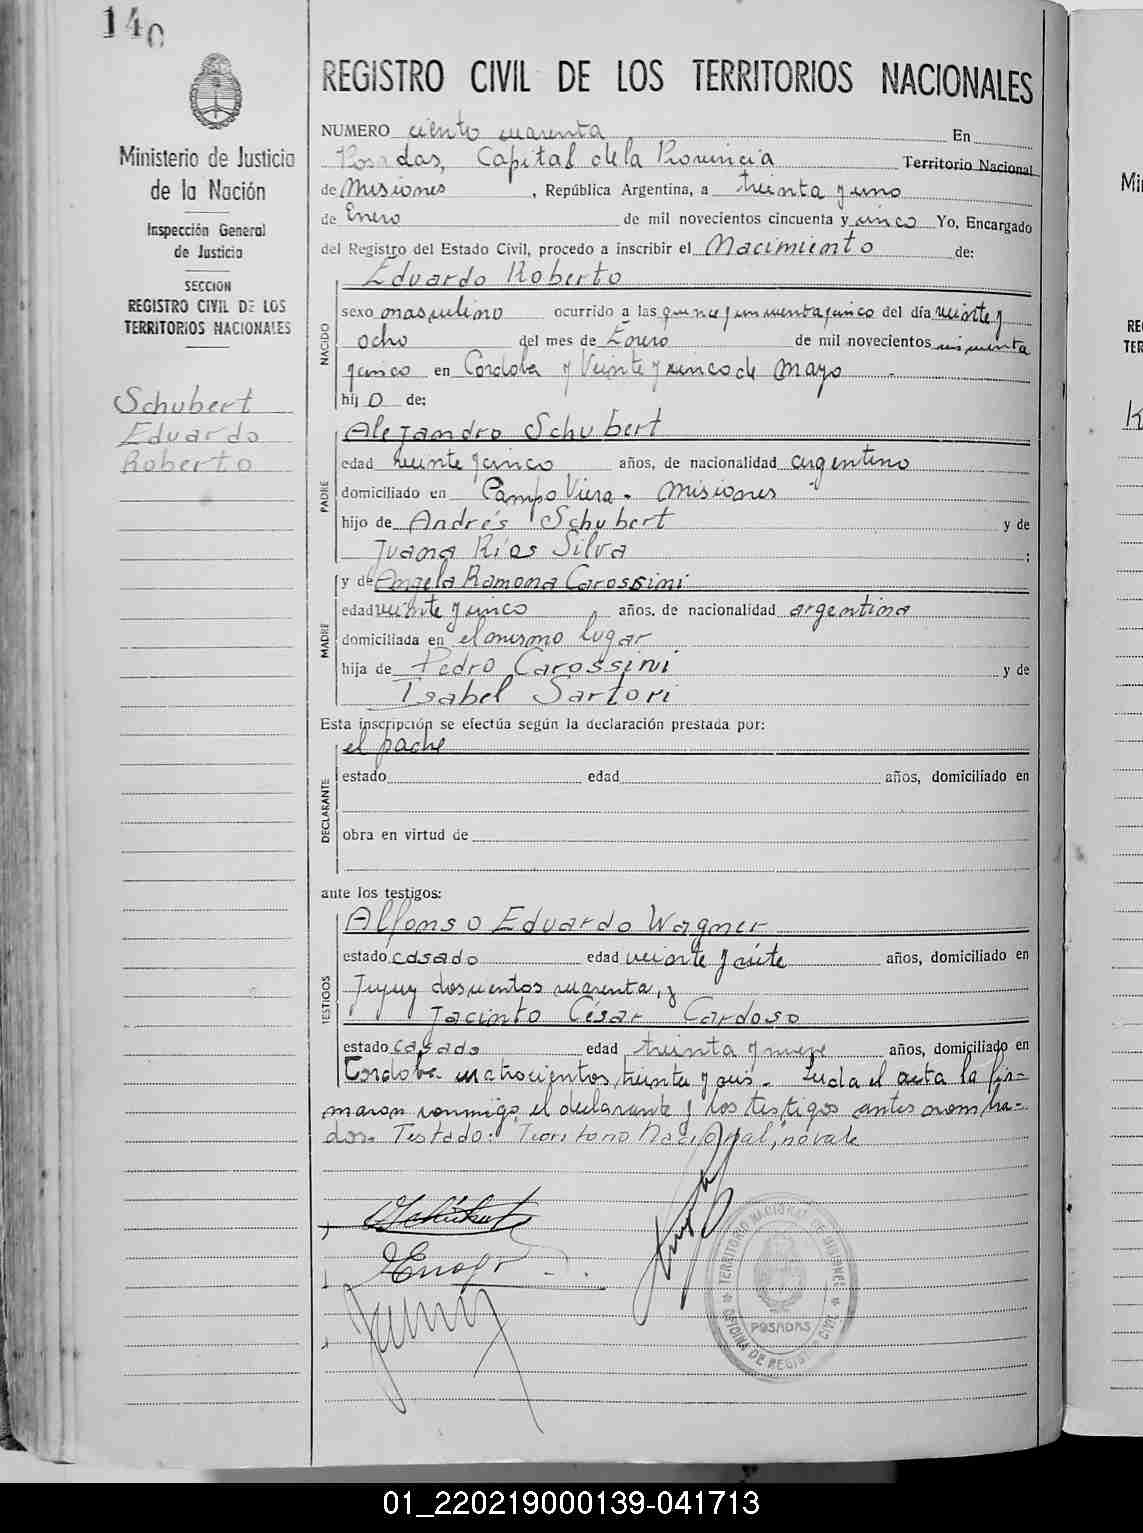 140
Ministerio de Justicia
de la Nación
Inspección General
de Justicia
SECCION
REGISTRO CIVIL DE LOS
TERRITORIOS NACIONALES
Schubert
Eduardo
Roberto
REGISTRO CIVIL DE LOS TERRITORIOS NACIONALES
NUMERO ciento cuarenta En
Posadas, Capital de la Provincia Territorio Nacional
de Misiones, República Argentina, a treinta y uno
de Enero de mil novecientos cincuenta y cinco Yo, Encargado
del Registro del Estado Civil, procedo a inscribir el Nacimiento de:
Eduardo Roberto
NACIDO
sexo masculino ocurrido a las quince y cincuenta y cinco del día veinte y
ocho del mes de Enero de mil novecientos cincuenta
y cinco en Córdoba y Veinte y cinco de Mayo
hijo de:
PADRE
Alejandro Schubert
edad veinte y cinco años, de nacionalidad argentino
domiciliado en Campo Viera - Misiones
hijo de Andrés Schubert y de
Juana Ríos Silva ;
MADRE
y de Angela Ramona Carossini
edad veinte y cinco años, de nacionalidad argentina
domiciliada en el mismo lugar
hija de Pedro Carossini y de
Isabel Sartori
Esta inscripción se efectúa según la declaración prestada por:
DECLARANTE
el padre
estado edad años, domiciliado en
obra en virtud de
ante los testigos:
TESTIGOS
Alfonso Eduardo Wagner
estado casado edad veinte y siete años, domiciliado en
Jujuy doscientos cuarenta, y
Jacinto César Cardoso
estado casado edad treinta y nueve años, domiciliado en
Córdoba cuatrocientos treinta y seis - Leída el acta la fir-
maron conmigo el declarante y los testigos antes nombra-
dos. Testado: "Territorio Nacional," no vale
TERRITORIO NACIONAL DE MISIONES
POSADAS
OFICINA DE REGISTRO CIVIL
01_220219000139-041713